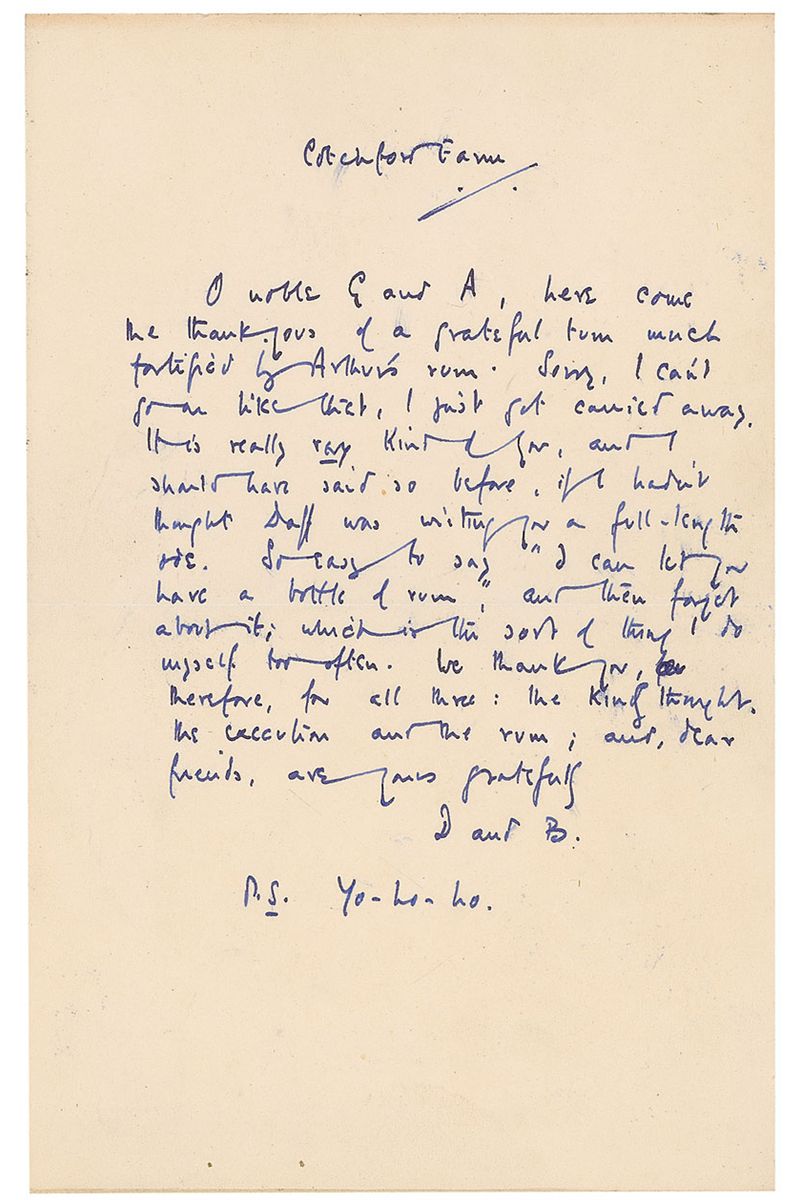 Cotchford Farm
O noble G and A, here come
the thank-yous of a grateful tum much
fortified by Arthur's rum. Sorry, I can't
go on like this, I just got carried away.
It is really very kind of you, and I
should have said so before, if I hadn't
thought Daff was writing you a full-length
ode. So easy to say "I can let you
have a bottle of rum", and then forget
about it; which is the sort of thing I do
myself too often. We thank you,
therefore, for all three: the kind thought,
the execution and the rum; and, dear
friends, are yours gratefully
D and B.
P.S. Yo-ho-ho.